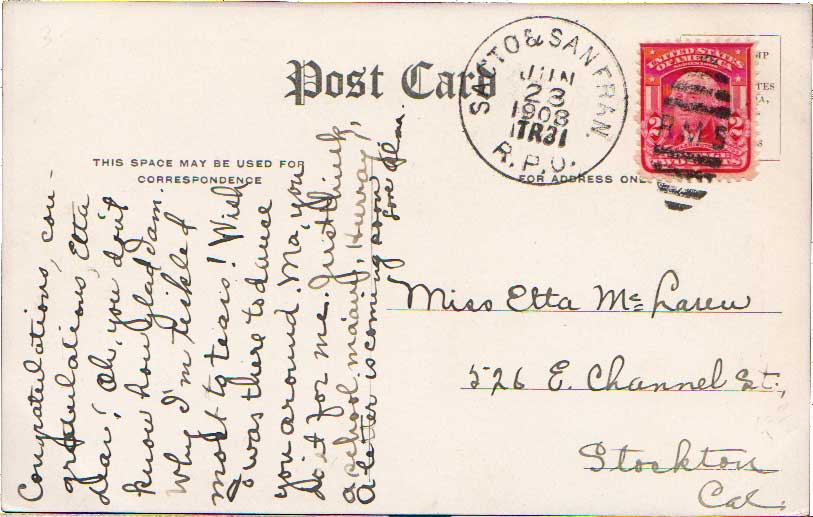 Post Card
THIS SPACE MAY BE USED FOR
CORRESPONDENCE
FOR ADDRESS ONL
SACTO & SAN FRAN.
JUN
23
1908
TR31
R.P.O.
UNITED STATES
OF AMERICA
2 2
TWO CENTS
R.M.S
Congratulations, con-
gratulations, Etta
dear! Oh, you don't
know how glad I am.
Why I'm tickled
most to tears! Wish
I was there to dance
you around. Ma, you
do it for me. Just think,
a school ma'am, Hurray
A letter is coming soon
Love
Miss Etta McLaren
526 E. Channel St.,
Stockton
Cal.